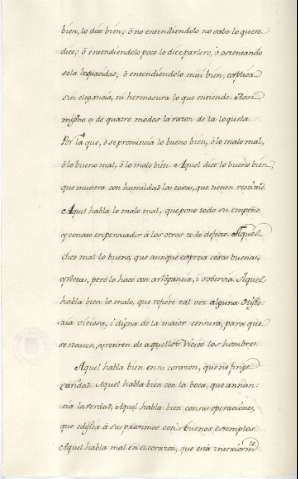 bien, lo dice bien; ò no entendiendolo no sabe lo que se
dice; ò entendiendolo poco lo dice parlero, ò ostentando
sola loquacidad; ò entendiendolo mui bien, explica
sin elegancia, ni hermosura lo que entiende.
mismo de quatro modos la razon de la loquela.
Por la que, ò se pronuncia lo bueno bien, ò lo malo mal,
ò lo bueno mal, ò lo malo bien. Aquel dice lo bueno bien
que muestra con humildad las cosas, que tienen
Aquel habla lo malo mal, que pone todo su empeño
en persuadir à los otros Aquel
dice mal lo bueno, que aunque expresa cosas buenas,
y rectas, pero lo hace con arrogancia, i sobervia. Aquel
habla bien lo malo, que refiere tal vez alguna
viciosa, i digna de la maior censura, para que
se de aquellos Vicios los hombres.
Aquel habla bien en su corazon, que no finge
Aquel habla bien con la boca, que anun-
cia la verdad: Aquel habla bien con sus operaciones,
que edifica à sus proximos con sus buenos exemplos
Aquel habla mal en el corazon, que està